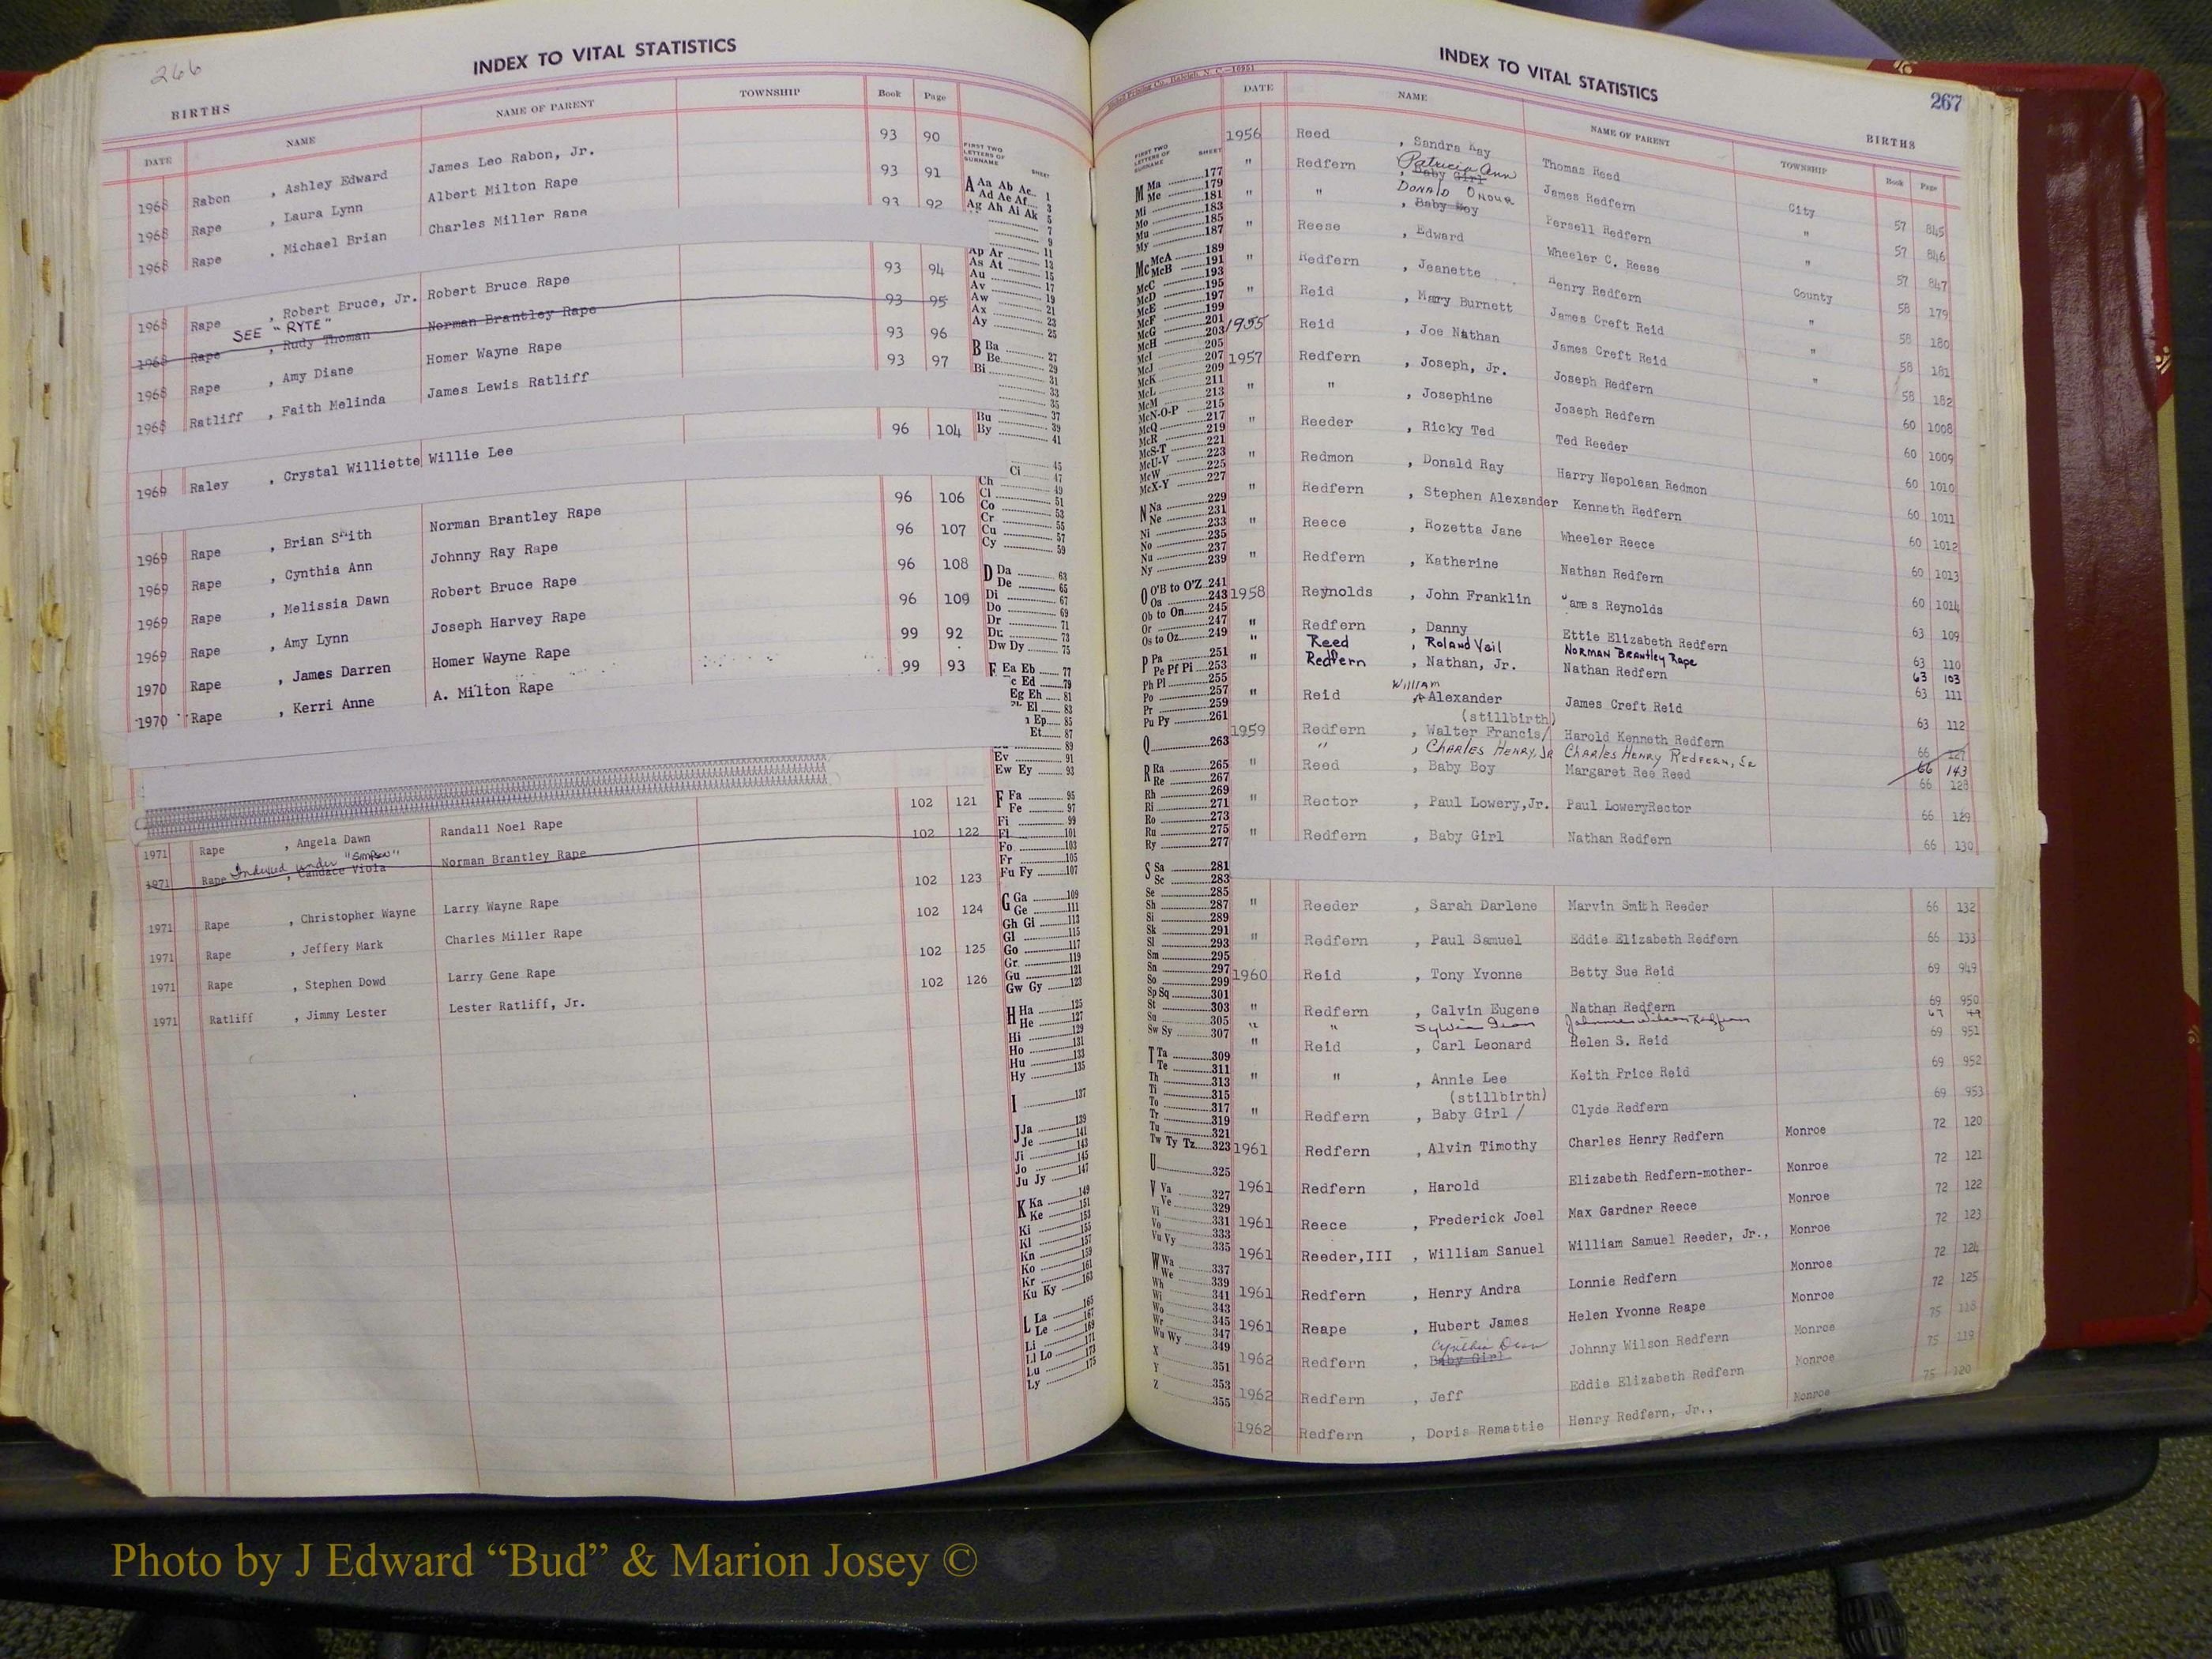 266
INDEX TO VITAL STATISTICS
BIRTHS
DATE NAME NAME OF PARENT TOWNSHIP Book Page
1968 Rabon , Ashley Edward James Leo Rabon, Jr. 93 90
1968 Rape , Laura Lynn Albert Milton Rape 93 91
1968 Rape , Michael Brian Charles Miller Rape 93 92
1968 Rape , Robert Bruce, Jr. Robert Bruce Rape 93 94
SEE "RYTE"
1968 Rape , Rudy Thoman Norman Brantley Rape 93 95
1968 Rape , Amy Diane Homer Wayne Rape 93 96
1968 Ratliff , Faith Melinda James Lewis Ratliff 93 97
1969 Raley , Crystal Williette Willie Lee 96 104
1969 Rape , Brian Smith Norman Brantley Rape 96 106
1969 Rape , Cynthia Ann Johnny Ray Rape 96 107
1969 Rape , Melissia Dawn Robert Bruce Rape 96 108
1969 Rape , Amy Lynn Joseph Harvey Rape 96 109
1970 Rape , James Darren Homer Wayne Rape 99 92
1970 Rape , Kerri Anne A. Milton Rape 99 93
1971 Rape , Angela Dawn Randall Noel Rape 102 121
Indexed under
1971 Rape , Candace Viola Norman Brantley Rape 102 122
1971 Rape , Christopher Wayne Larry Wayne Rape 102 123
1971 Rape , Jeffery Mark Charles Miller Rape 102 124
1971 Rape , Stephen Dowd Larry Gene Rape 102 125
1971 Ratliff , Jimmy Lester Lester Ratliff, Jr. 102 126
FIRST TWO
LETTERS OF
SURNAME
SHEET
A Aa Ab Ac 1
Ad Ae Af 3
Ag Ah Ai Ak 5
7
9
Ap Ar 11
As At 13
Au 15
Av 17
Aw 19
Ax 21
Ay 23
25
B Ba 27
Be 29
Bi 31
33
35
Bu 37
By 39
41
45
Ci 47
Ch 49
Cl 51
Co 53
Cr 55
Cu 57
Cy 59
D Da 63
De 65
Di 67
Do 69
Dr 71
Du 73
Dw Dy 75
E Ea Eb 77
Ec Ed 79
Eg Eh 81
El 83
Ep 85
Et 87
89
Ev 91
Ew Ey 93
F Fa 95
Fe 97
Fi 99
Fl 101
Fo 103
Fr 105
Fu Fy 107
G Ga 109
Ge 111
Gh Gi 113
Gl 115
Go 117
Gr 119
Gu 121
Gw Gy 123
H Ha 125
He 127
Hi 129
Ho 131
Hu 133
Hy 135
I 137
J Ja 139
Je 141
Ji 143
Jo 145
Ju Jy 147
K Ka 149
Ke 151
Ki 153
Kl 155
Kn 157
Ko 159
Kr 161
Ku Ky 163
L La 165
Le 167
Li 169
Ll Lo 171
Lu 173
Ly 175
INDEX TO VITAL STATISTICS
267
BIRTHS
DATE NAME NAME OF PARENT TOWNSHIP Book Page
FIRST TWO
LETTERS OF
SURNAME
SHEET
M Ma 177
Me 179
Mi 181
Mo 183
Mu 185
My 187
Mc McA 189
McB 191
McC 193
McD 195
McE 197
McF 199
McG 201
McH 203
McI 205
McJ 207
McK 209
McL 211
McM 213
McN-O-P 215
McQ 217
McR 219
McS-T 221
McU-V 223
McW 225
McX-Y 227
N Na 229
Ne 231
Ni 233
No 235
Nu 237
Ny 239
O O'B to O'Z 241
Oa 243
Ob to On 245
Or 247
Os to Oz 249
P Pa 251
Pe Pf Pi 253
Ph Pl 255
Po 257
Pr 259
Pu Py 261
Q 263
R Ra 265
Re 267
Rh 269
Ri 271
Ro 273
Ru 275
Ry 277
S Sa 281
Sc 283
Se 285
Sh 287
Si 289
Sk 291
Sl 293
Sm 295
Sn 297
So 299
Sp Sq 301
St 303
Su 305
Sw Sy 307
T Ta 309
Te 311
Th 313
Ti 315
To 317
Tr 319
Tu 321
Tw Ty Tz 323
U 325
V Va 327
Ve 329
Vi 331
Vo 333
Vu Vy 335
W Wa 337
We 339
Wh 341
Wi 343
Wo 345
Wr 347
Wu Wy 349
X 351
Y 353
Z 355
1956 Reed , Sandra Kay Thomas Reed City 57 845
Patricia Ann
" Redfern , Baby Girl James Redfern " 57 846
DONALD ONOUR
" " , Baby Boy Persell Redfern " 57 847
" Reese , Edward Wheeler C. Reese County 58 179
" Redfern , Jeanette Henry Redfern " 58 180
" Reid , Mary Burnett James Creft Reid " 58 181
1955 Reid , Joe Nathan James Creft Reid " 58 182
1957 Redfern , Joseph, Jr. Joseph Redfern 60 1008
" " , Josephine Joseph Redfern 60 1009
" Reeder , Ricky Ted Ted Reeder 60 1010
" Redmon , Donald Ray Harry Nepolean Redmon 60 1011
" Redfern , Stephen Alexander Kenneth Redfern 60 1012
" Reece , Rozetta Jane Wheeler Reece 60 1013
" Redfern , Katherine Nathan Redfern 60 1014
1958 Reynolds , John Franklin James Reynolds 63 109
" Redfern , Danny Ettie Elizabeth Redfern 63 110
" Reed , Roland Vail NORMAN BRANTLEY Rape 63 103
" Redfern , Nathan, Jr. Nathan Redfern 63 111
William
" Reid , Alexander James Creft Reid 63 112
(stillbirth)
1959 Redfern , Walter Francis/ Harold Kenneth Redfern 66 127
" , CHARLES HENRY, JR CHARLES HENRY REDFERN, SR 66 143
" Reed , Baby Boy Margaret Ree Reed 66 128
" Rector , Paul Lowery,Jr. Paul LoweryRector 66 129
" Redfern , Baby Girl Nathan Redfern 66 130
" Reeder , Sarah Darlene Marvin Smith Reeder 66 132
" Redfern , Paul Samuel Eddie Elizabeth Redfern 66 133
1960 Reid , Tony Yvonne Betty Sue Reid 69 949
" Redfern , Calvin Eugene Nathan Redfern 69 950
" " Sylvia Johnnie Wilson Redfern
" Reid , Carl Leonard Helen S. Reid 69 951
" " , Annie Lee Keith Price Reid 69 952
(stillbirth)
" Redfern , Baby Girl / Clyde Redfern 69 953
1961 Redfern , Alvin Timothy Charles Henry Redfern Monroe 72 120
1961 Redfern , Harold Elizabeth Redfern-mother- Monroe 72 121
1961 Reece , Frederick Joel Max Gardner Reece Monroe 72 122
1961 Reeder,III , William Sanuel William Samuel Reeder, Jr., Monroe 72 123
1961 Redfern , Henry Andra Lonnie Redfern Monroe 72 124
1961 Reape , Hubert James Helen Yvonne Reape Monroe 72 125
Cynthia Dean
1962 Redfern , Baby Girl Johnny Wilson Redfern Monroe 75 118
1962 Redfern , Jeff Eddie Elizabeth Redfern Monroe 75 119
1962 Redfern , Doris Remattie Henry Redfern, Jr., Monroe 75 120
Photo by J Edward “Bud” & Marion Josey ©